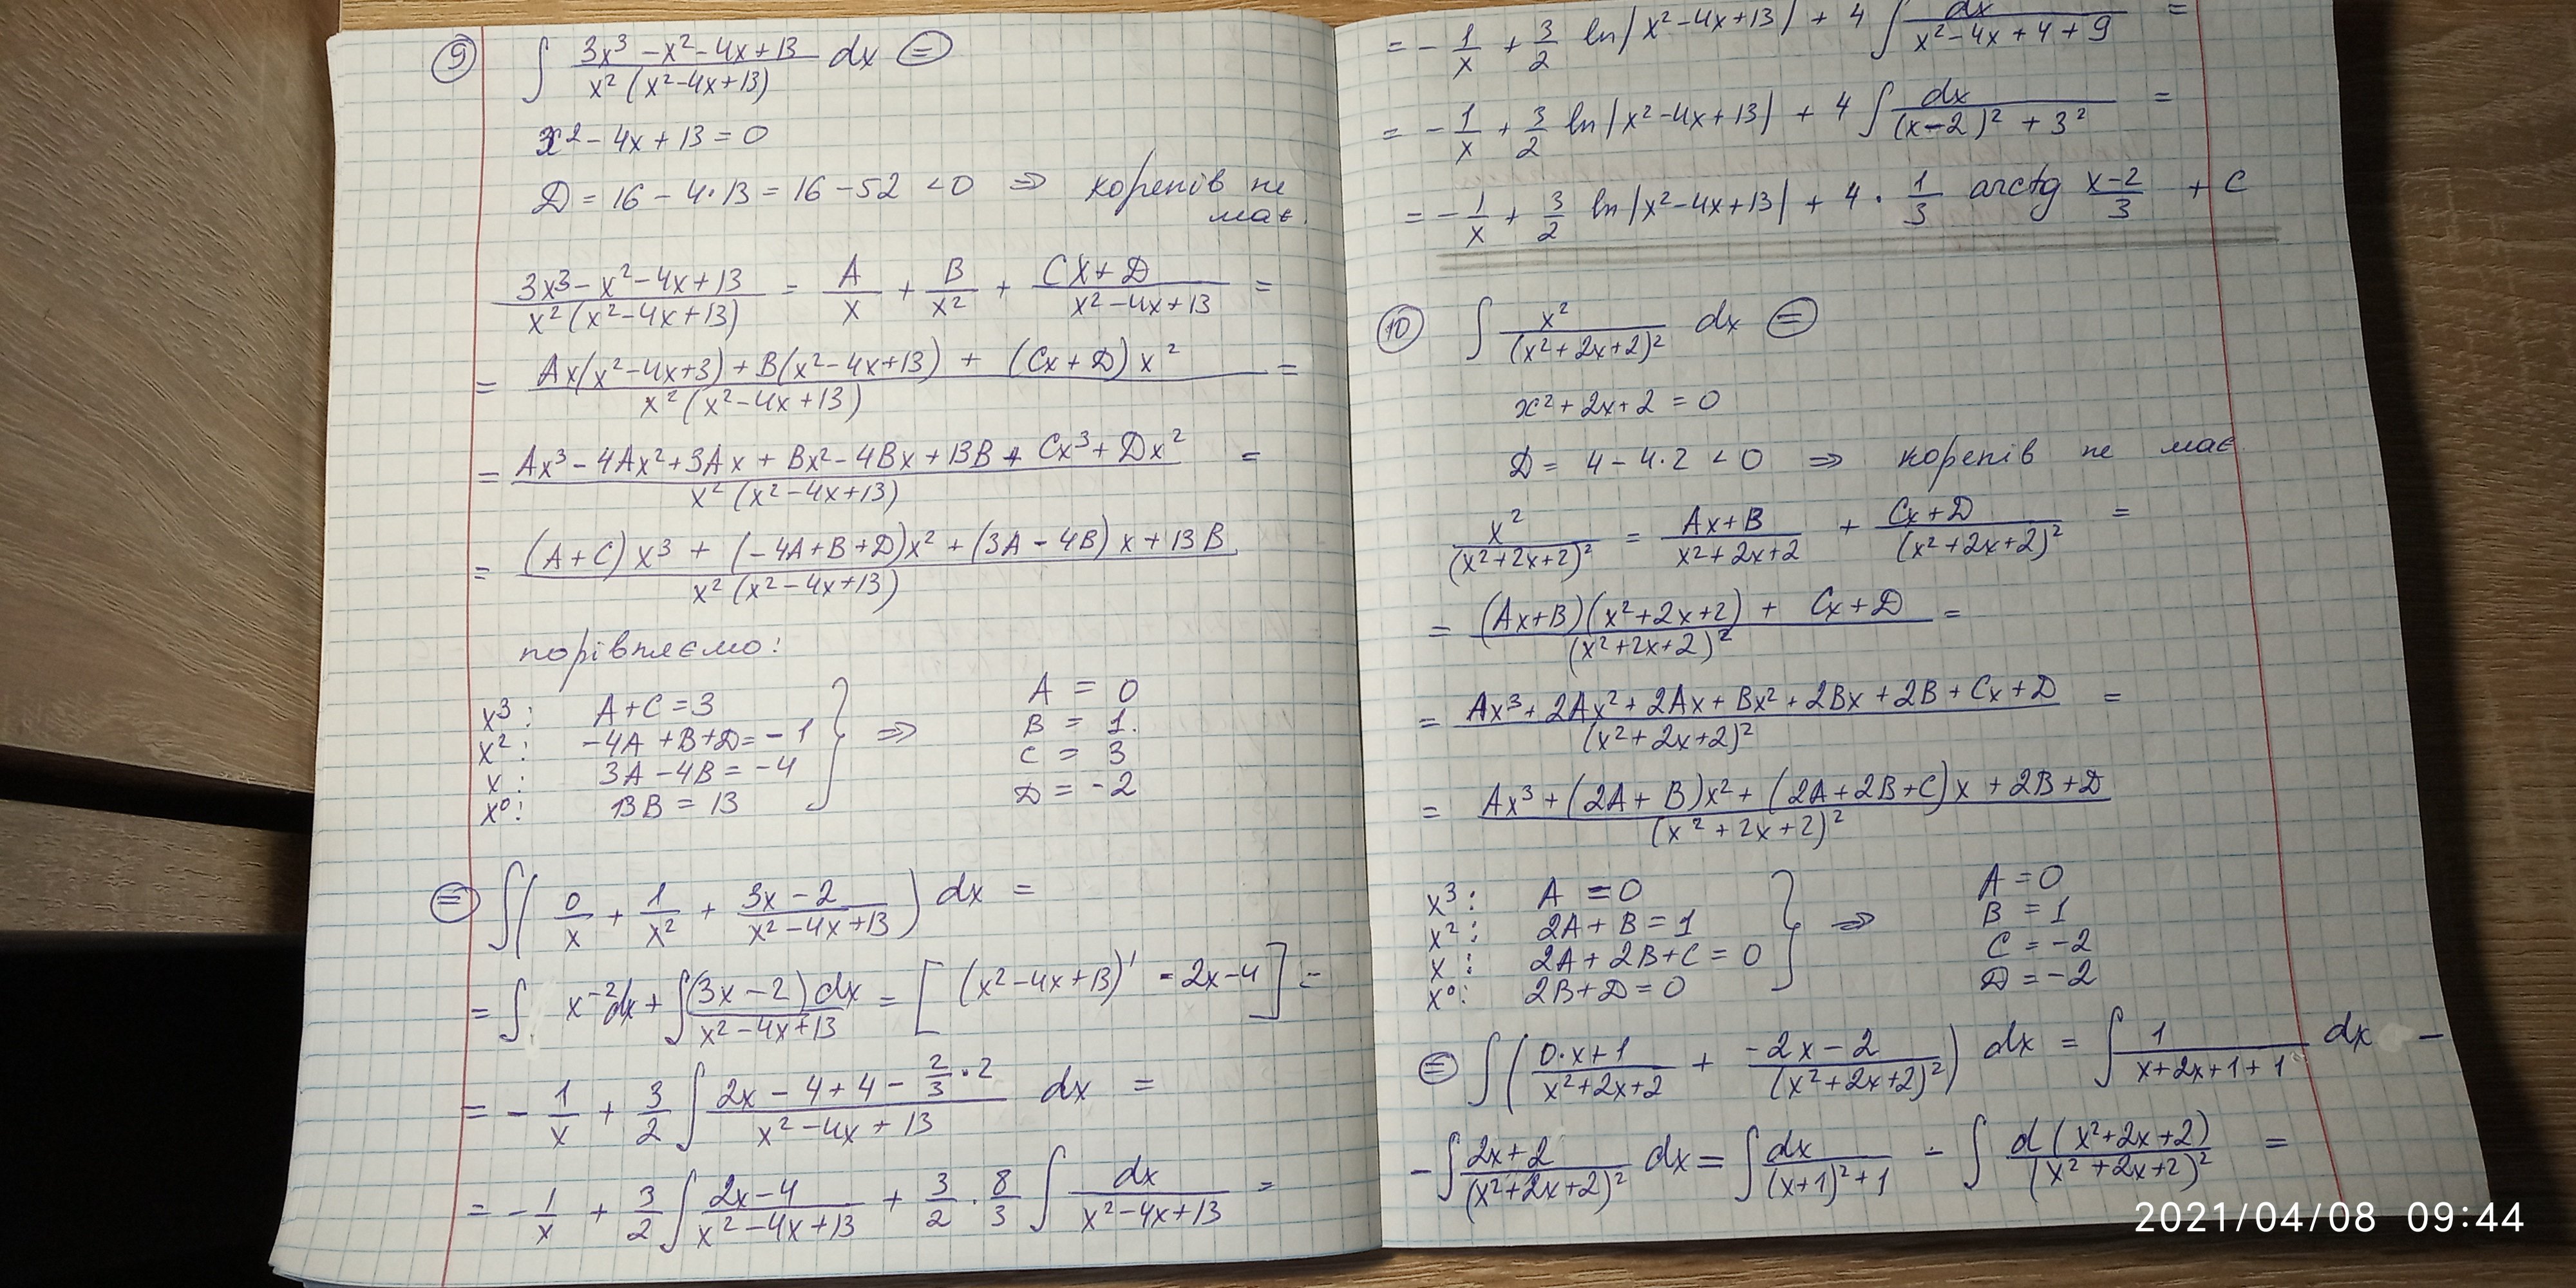 ⑨ ∫ (3x³ - x² - 4x + 13)/(x² (x² - 4x + 13)) dx ⊜
x² - 4x + 13 = 0
D = 16 - 4·13 = 16 - 52 < 0 ⇒ коренів не
має.
(3x³ - x² - 4x + 13)/(x² (x² - 4x + 13)) = A/x + B/x² + (Cx + D)/(x² - 4x + 13) =
= (Ax(x² - 4x + 3) + B(x² - 4x + 13) + (Cx + D) x²)/(x² (x² - 4x + 13)) =
= (Ax³ - 4Ax² + 3Ax + Bx² - 4Bx + 13B + Cx³ + Dx²)/(x² (x² - 4x + 13)) =
= ((A + C) x³ + (-4A + B + D)x² + (3A - 4B) x + 13B)/(x² (x² - 4x + 13))
порівняємо:
x³: A + C = 3 A = 0
x²: -4A + B + D = -1 ⇒ B = 1.
x: 3A - 4B = -4 C = 3
x⁰: 13B = 13 D = -2
⊜ ∫ (0/x + 1/x² + (3x - 2)/(x² - 4x + 13)) dx =
= ∫ x⁻² dx + ∫ (3x - 2) dx/(x² - 4x + 13) = [(x² - 4x + 13)' = 2x - 4] =
= - 1/x + 3/2 ∫ (2x - 4 + 4 - 2/3 · 2)/(x² - 4x + 13) dx =
= - 1/x + 3/2 ∫ (2x - 4)/(x² - 4x + 13) + 3/2 · 8/3 ∫ dx/(x² - 4x + 13) =
= - 1/x + 3/2 ln|x² - 4x + 13| + 4 ∫ dx/(x² - 4x + 4 + 9) =
= - 1/x + 3/2 ln|x² - 4x + 13| + 4 ∫ dx/((x - 2)² + 3²) =
= - 1/x + 3/2 ln|x² - 4x + 13| + 4 · 1/3 arctg (x - 2)/3 + C
⑩ ∫ x²/(x² + 2x + 2)² dx ⊜
x² + 2x + 2 = 0
D = 4 - 4·2 < 0 ⇒ коренів не має
x²/(x² + 2x + 2)² = (Ax + B)/(x² + 2x + 2) + (Cx + D)/(x² + 2x + 2)² =
= ((Ax + B)(x² + 2x + 2) + Cx + D)/(x² + 2x + 2)² =
= (Ax³ + 2Ax² + 2Ax + Bx² + 2Bx + 2B + Cx + D)/(x² + 2x + 2)² =
= (Ax³ + (2A + B)x² + (2A + 2B + C)x + 2B + D)/(x² + 2x + 2)²
x³: A = 0 A = 0
x²: 2A + B = 1 ⇒ B = 1
x: 2A + 2B + C = 0 C = -2
x⁰: 2B + D = 0 D = -2
⊜ ∫ ((0·x + 1)/(x² + 2x + 2) + (-2x - 2)/(x² + 2x + 2)²) dx = ∫ 1/(x + 2x + 1 + 1) dx -
- ∫ (2x + 2)/(x² + 2x + 2)² dx = ∫ dx/((x + 1)² + 1) - ∫ d(x² + 2x + 2)/(x² + 2x + 2)² =
2021/04/08 09:44